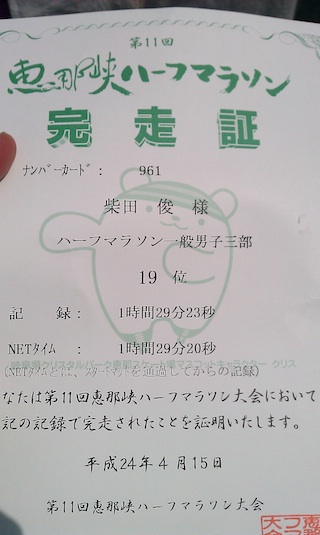 第11回
恵那峡ハーフマラソン
完走証
ﾅﾝﾊﾞｰｶｰﾄﾞ： 961
柴田 俊 様
ハーフマラソン一般男子三部
19 位
記 録： 1時間29分23秒
NETﾀｲﾑ： 1時間29分20秒
岐阜県クリスタルパーク恵那スケート場マスコットキャラクター クリス
(NETﾀｲﾑとは、ｽﾀｰﾄﾏｯﾄを通過してからの記録)
なたは第11回恵那峡ハーフマラソン大会において
記の記録で完走されたことを証明いたします。
平成24年4月15日
第11回恵那峡ハーフマラソン大会